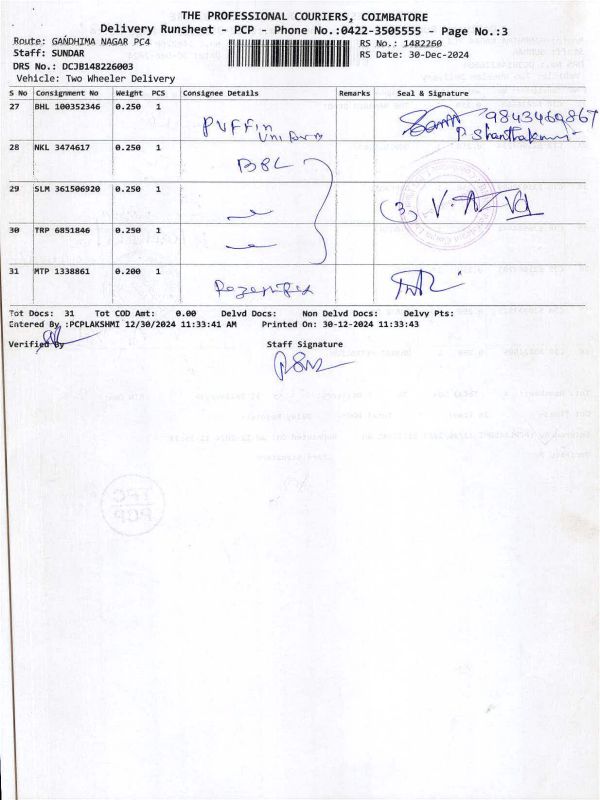 THE PROFESSIONAL COURIERS, COIMBATORE
Delivery Runsheet - PCP - Phone No.:0422-3505555 - Page No.:3
Route: GANDHIMA NAGAR PC4 RS No.: 1482260
Staff: SUNDAR RS Date: 30-Dec-2024
DRS No.: DCJB148226003
Vehicle: Two Wheeler Delivery
S No Consignment No Weight PCS Consignee Details Remarks Seal & Signature
27 BHL 100352346 0.250 1 Puffin 9843469867
Uniform P Shanthakumar
28 NKL 3474617 0.250 1 BBL
29 SLM 361506920 0.250 1 (3)
30 TRP 6851846 0.250 1
31 MTP 1338861 0.200 1
Tot Docs: 31 Tot COD Amt: 0.00 Delvd Docs: Non Delvd Docs: Delvy Pts:
Entered By :PCPLAKSHMI 12/30/2024 11:33:41 AM Printed On: 30-12-2024 11:33:43
Verified By Staff Signature